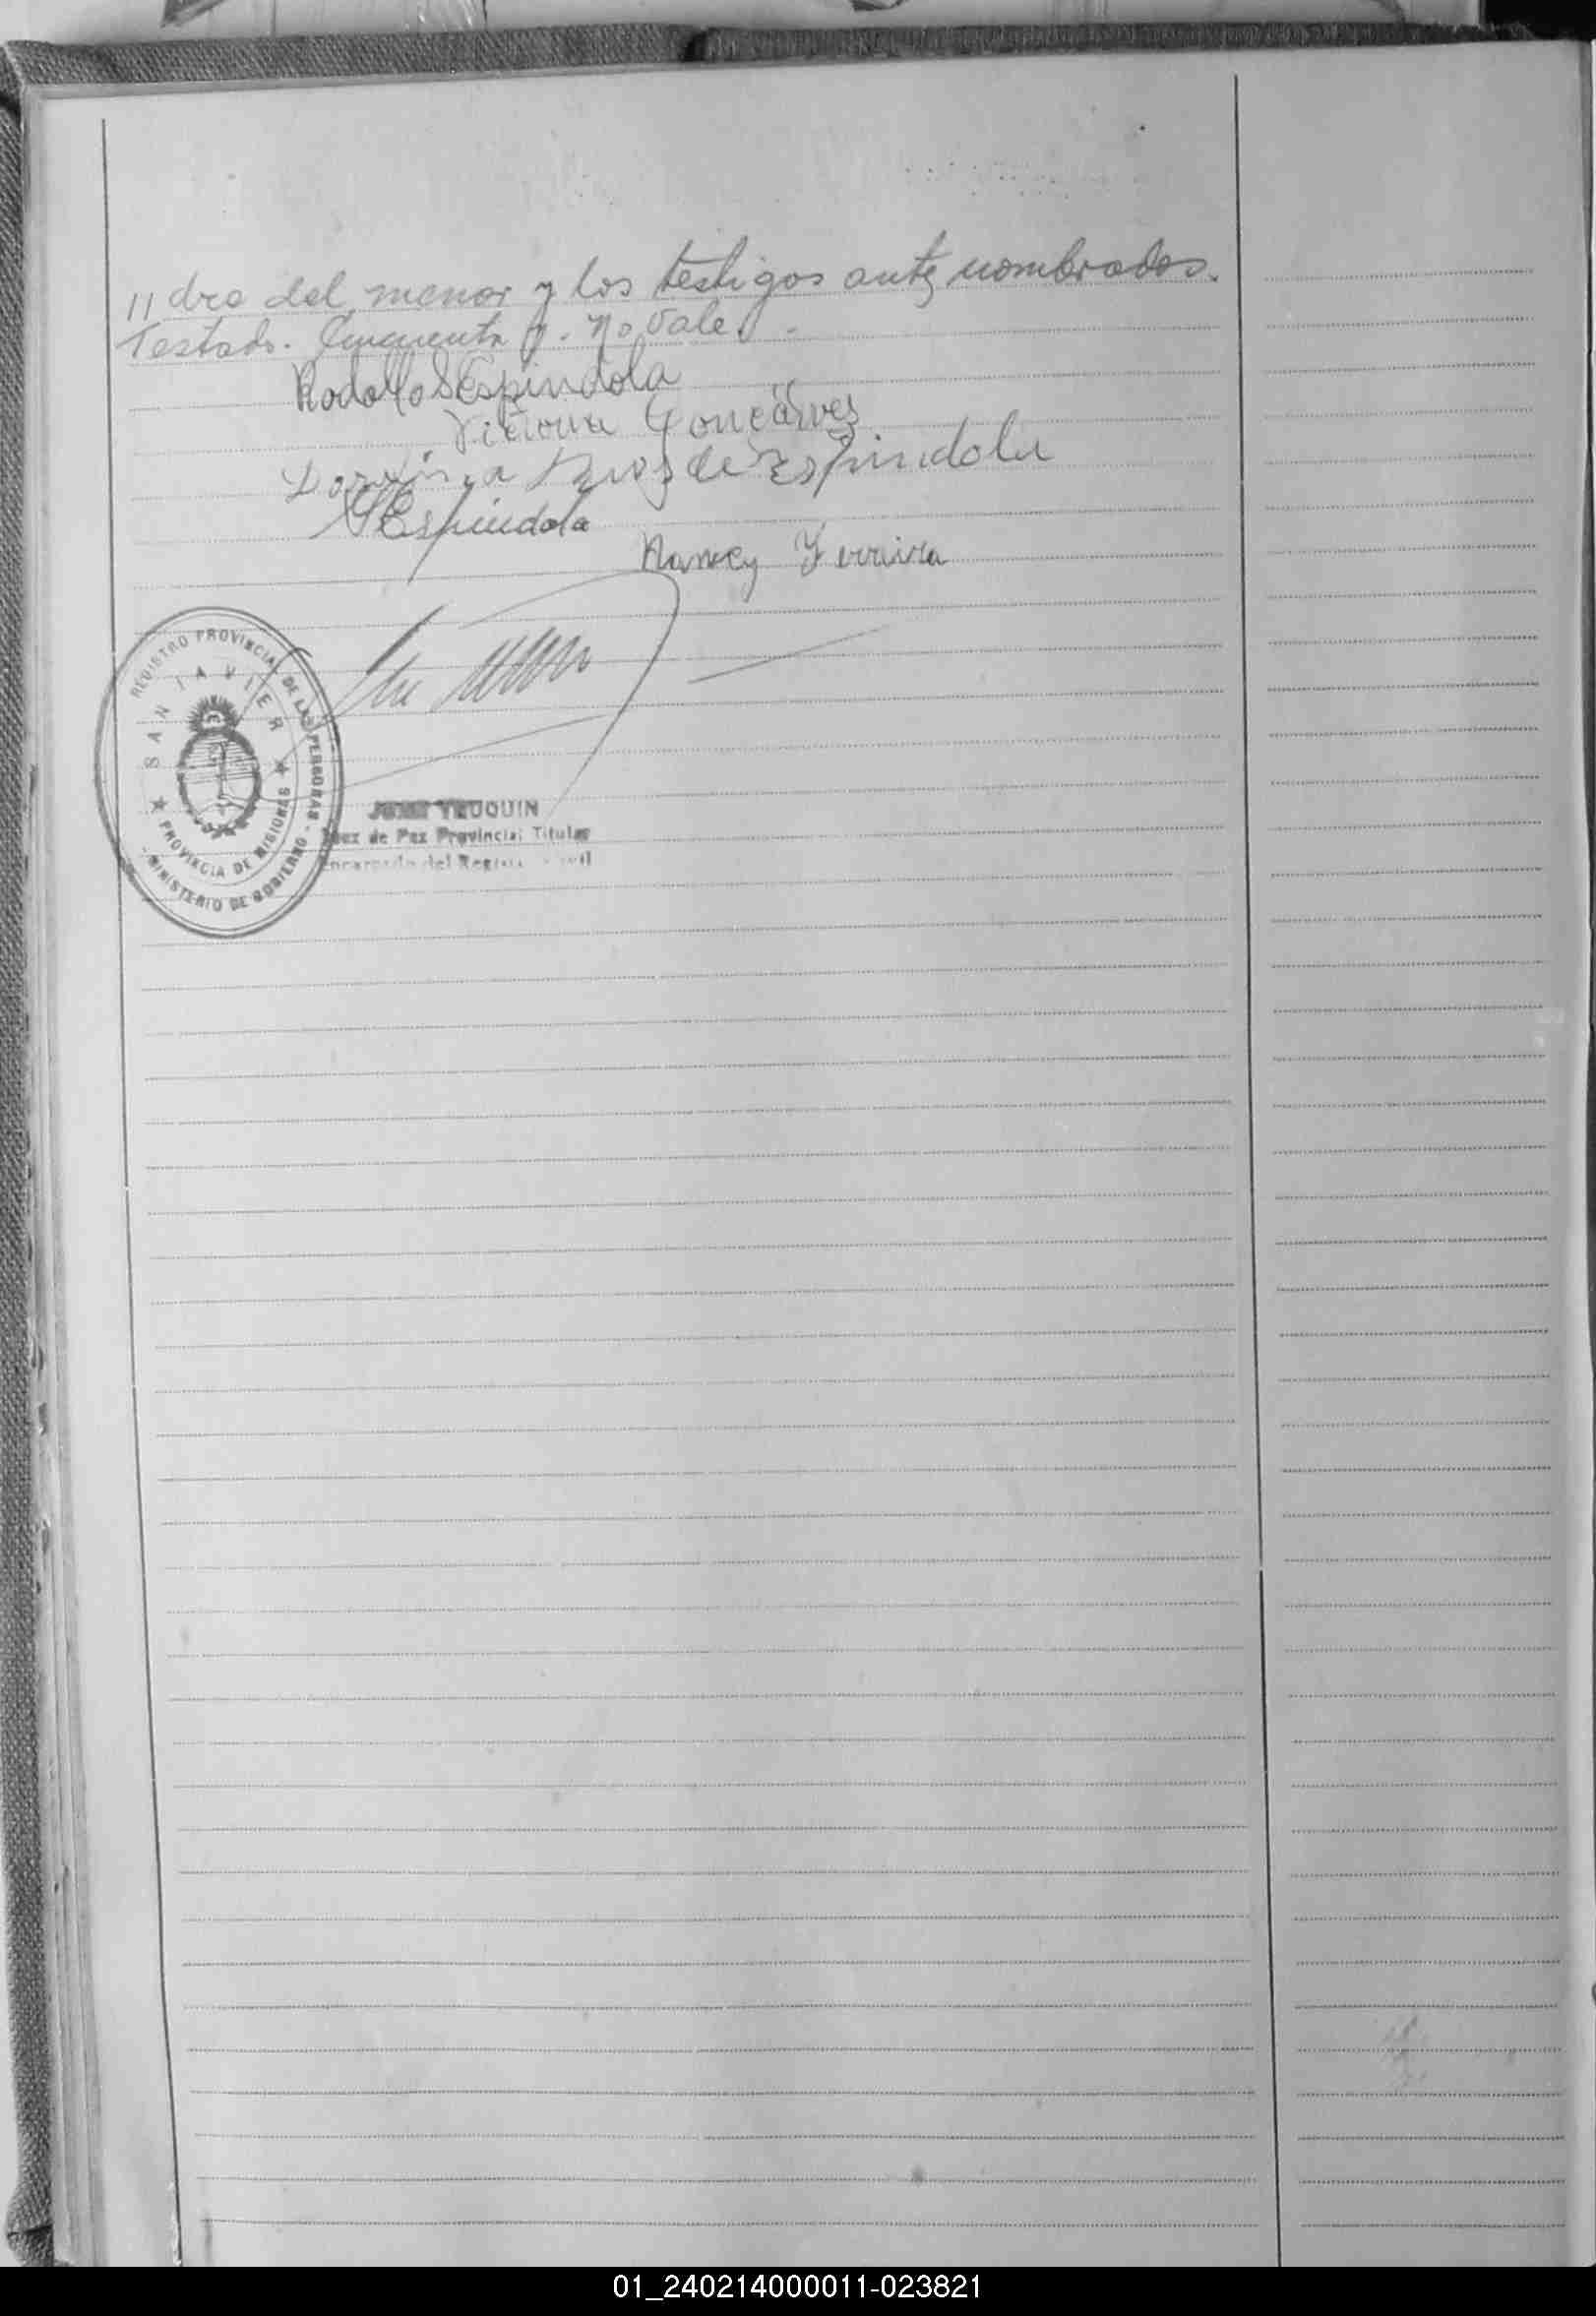 "dre del menor y los testigos ante nombrados.
Testado. Cincuenta y. No Vale.
Rodolfo S Espindola
Victoria Gonçalves
de Espindola
Espindola
Nancy Ferreira
REGISTRO PROVINCIAL DE LAS PERSONAS - MINISTERIO DE GOBIERNO -
SAN JAVIER
★ PROVINCIA DE MISIONES ★
Juez de Paz Provincial Titular
Encargado del Registro Civil
01_240214000011-023821